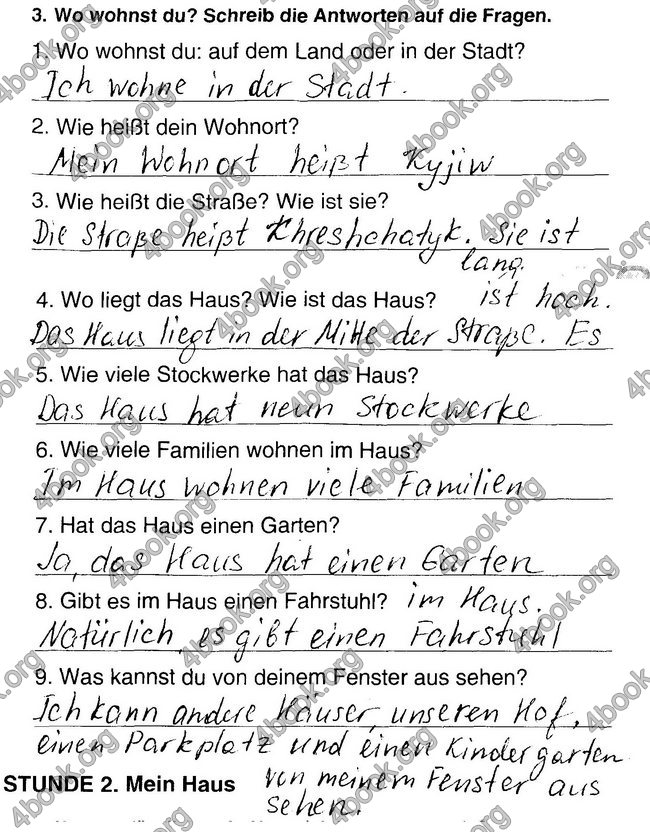 3. Wo wohnst du? Schreib die Antworten auf die Fragen.
1. Wo wohnst du: auf dem Land oder in der Stadt?
Ich wohne in der Stadt.
2. Wie heißt dein Wohnort?
Mein Wohnort heißt Kyjiw
3. Wie heißt die Straße? Wie ist sie?
Die Straße heißt Khreshchatyk. Sie ist
lang.
4. Wo liegt das Haus? Wie ist das Haus? ist hoch.
Das Haus liegt in der Mitte der Straße. Es
5. Wie viele Stockwerke hat das Haus?
Das Haus hat neun Stockwerke
6. Wie viele Familien wohnen im Haus?
Im Haus wohnen viele Familien
7. Hat das Haus einen Garten?
Ja, das Haus hat einen Garten
8. Gibt es im Haus einen Fahrstuhl? im Haus.
Natürlich, es gibt einen Fahrstuhl
9. Was kannst du von deinem Fenster aus sehen?
Ich kann andere Häuser, unseren Hof,
einen Parkplatz und einen Kindergarten
STUNDE 2. Mein Haus von meinem Fenster aus
sehen.
4book.org